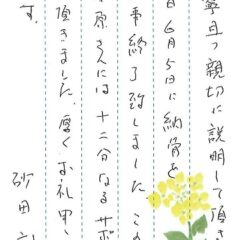 寧且つ親切に説明して頂き
日6月5日に納骨を
事終了致しました。この
原さんには十二分なるサポ
頂きました。厚くお礼申し
す。
砂田